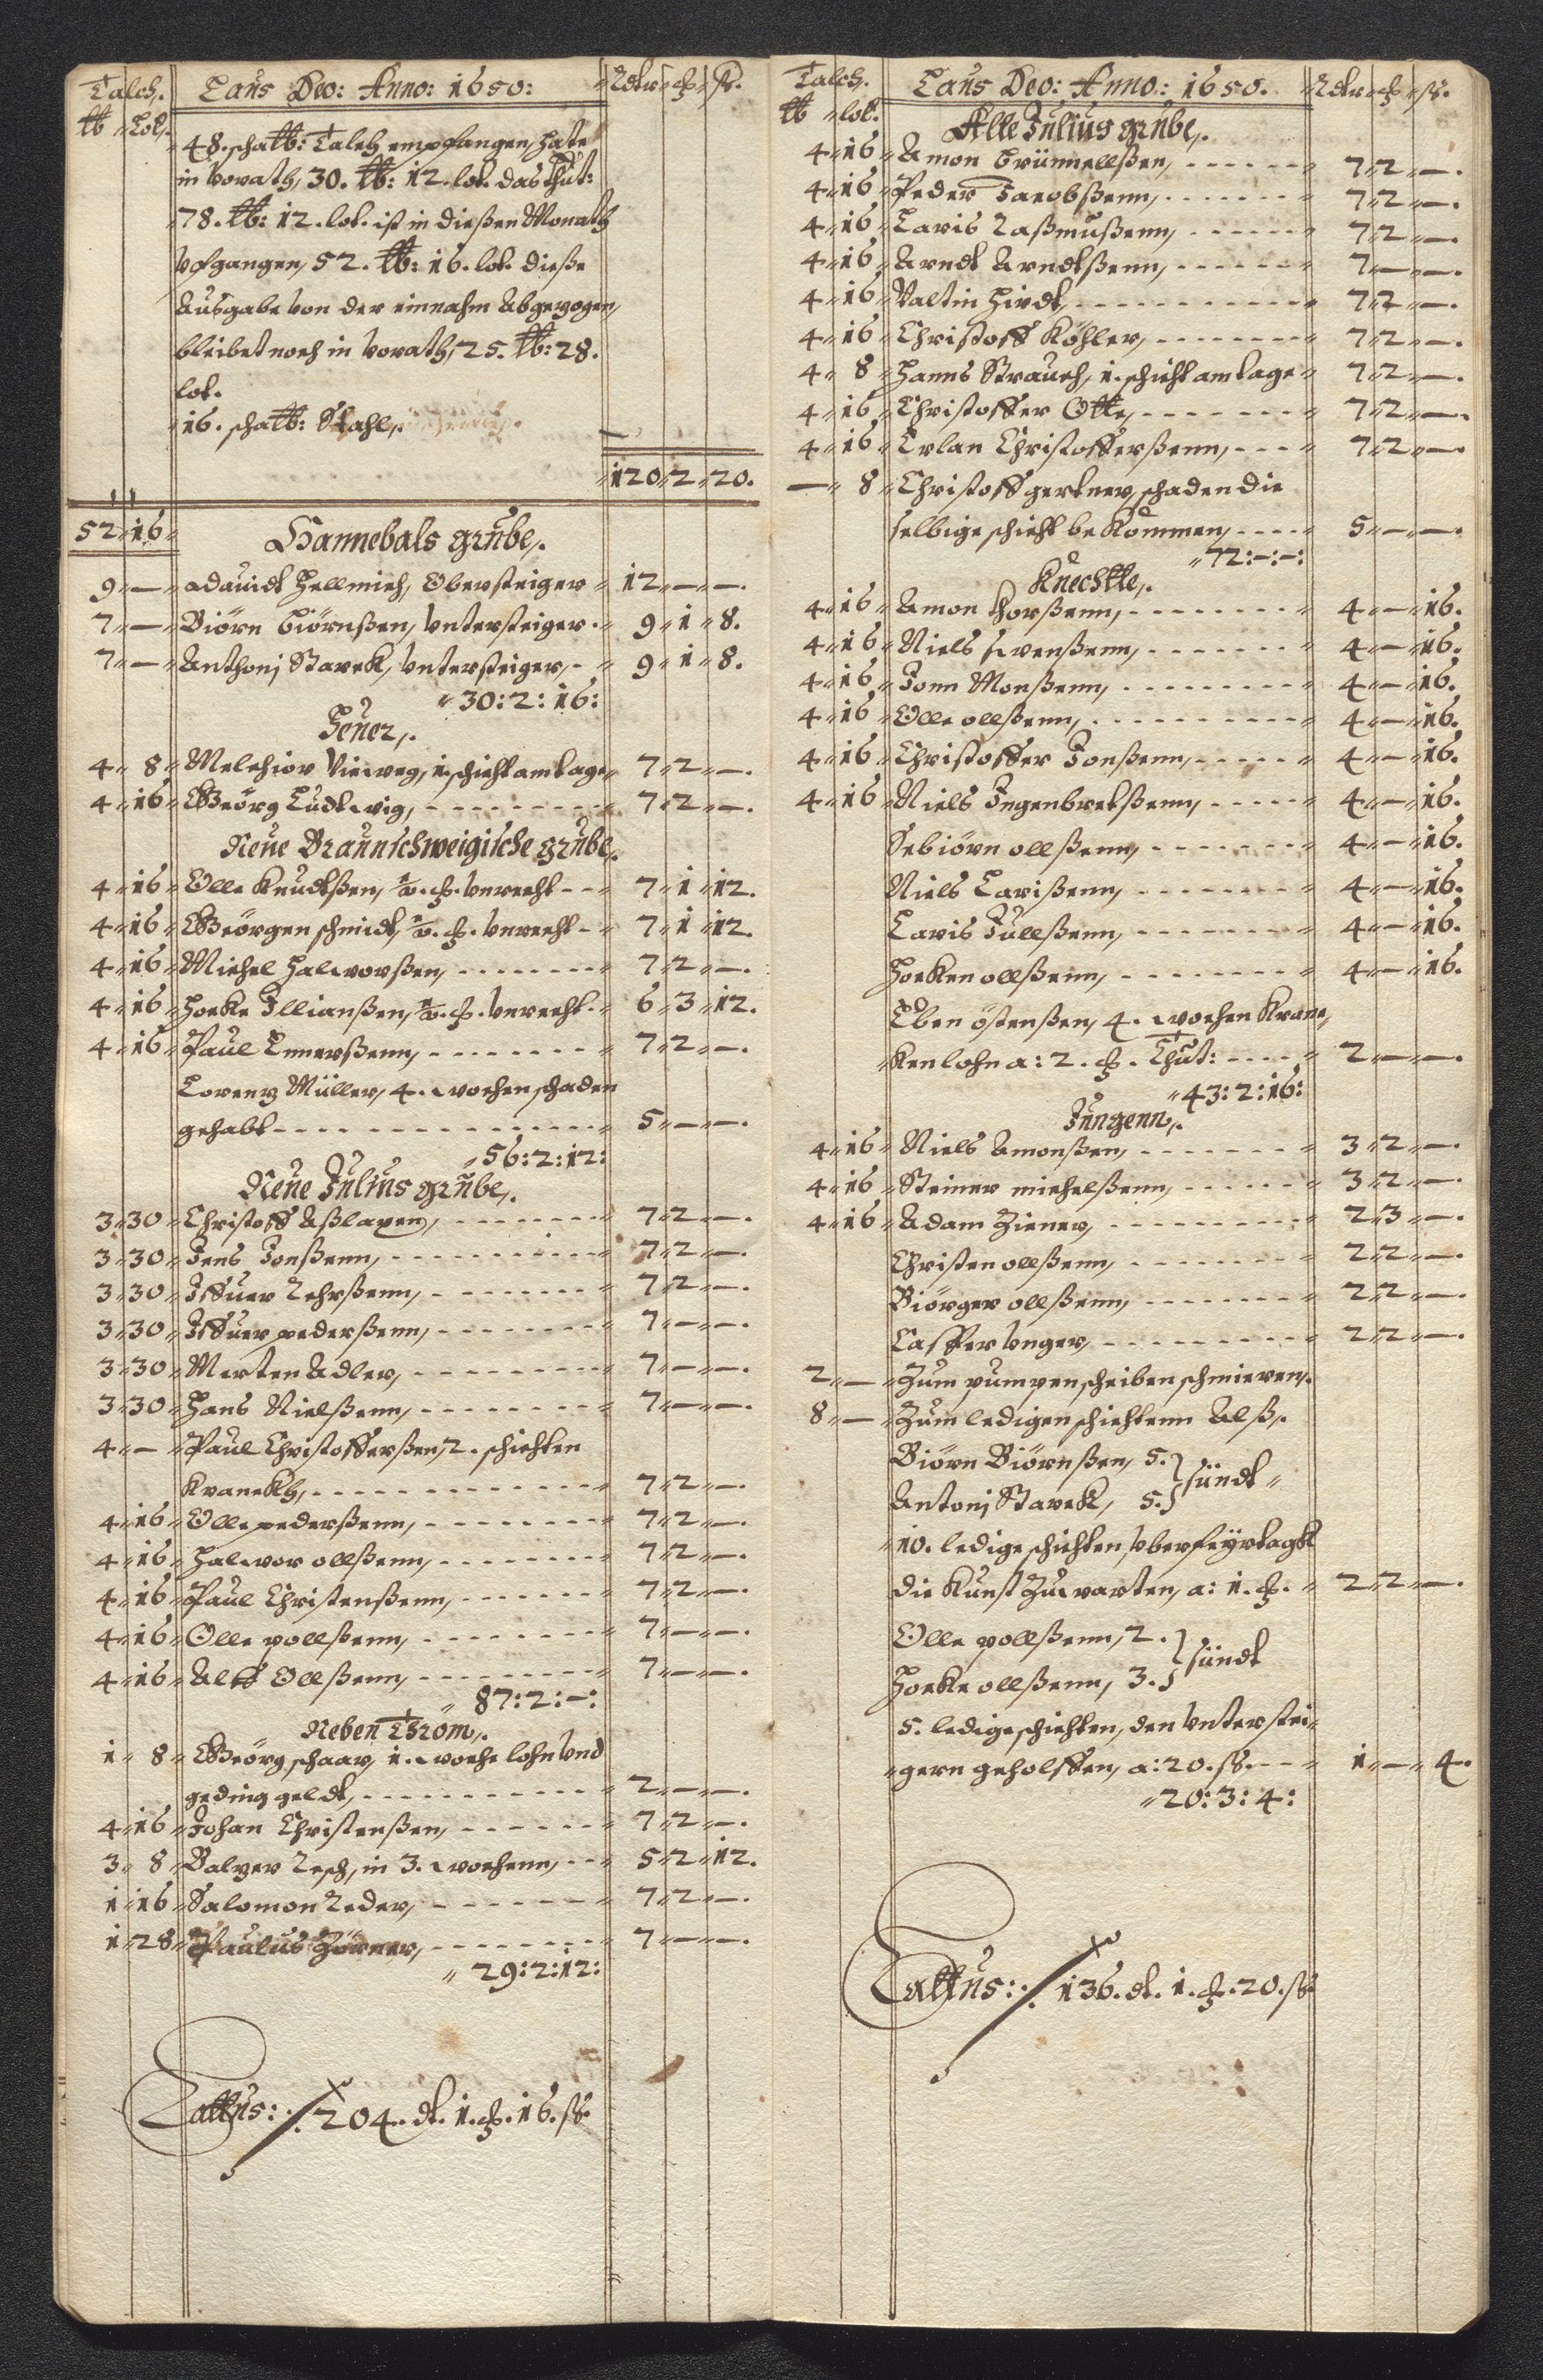 Talch. Laus Deo: Anno: 1650: Rdtr ß.
℔ Lot.
48. scha℔: Talch empfangen, hate
in Vorath, 30. ℔: 12. lot. das thut:
78. ℔: 12. lot. ist in dießen Monath
Vfgangen, 52. ℔: 16. lot. dieße
Ausgabe von der einnahm Abgezogen,
bleibet noch in vorath, 25. ℔: 28.
lot.
16. scha℔: Stahl,.
120 2 20.
52 16
Hannebals grube,.
9 — Dauidt Hellmich, Obersteiger 12 — —.
7 — Biörn Biörnßen, Vntersteiger 9 1 8.
7 — Anthonj Starck, Vntersteiger, 9 1 8.
30: 2: 16:
Heuer,.
4 8 Melchior Vieweg, 1. schicht am tage, 7 2 —.
4 16 Geörg Ludtwig, 7 2 —.
Neue Braunschweigische grube,.
4 16 Olle Knudtßen, Vnrecht 7 1 12.
4 16 Geörgen schmidt, Vnrecht 7 1 12.
4 16 Michel Halworßen, 7 2 —.
4 16 Hocke Illianßen, Vnrecht 6 3 12.
4 16 Paul Ennerßenn, 7 2 —.
Lorentz Müller, 4. wochen schaden
gehabt 5 — —.
56: 2: 12:
Neue Julius grube,.
3 30 Christoff Aßlaxen, 7 2 —.
3 30 Jens Jonßenn, 7 2 —.
3 30 Iffuer Lehrßenn, 7 2 —.
3 30 Iffuer pederßenn, 7 — —.
3 30 Merten Adler, 7 — —.
3 30 Hans Nielßenn, 7 — —.
4 — Paul Christofferßen, 2. schichten
kranckh, 7 2 —.
4 16 Olle pederßenn, 7 2 —.
4 16 Halwor ollßenn, 7 2 —.
4 16 Paul Christenßenn, 7 2 —.
4 16 Olle pollßenn, 7 — —.
4 16 Alff Ollßenn, 7 — —.
87: 2: —:
Neben Throm,.
1 8 Geörg schaar, 1. woche lohn Vnd
geding geldt, 2 — —.
4 16 Johan Christenßen, 7 2 —.
3 8 Balzer Resch, in 3. wochenn, 5 2 12.
1 16 Salomon Reder, 7 2 —.
1 28 Paulus Zörner, 7 — —.
29: 2: 12:
Lattus: ⁒ 204. dt. 1. 16. ß.
Talch. Laus Deo: Anno: 1650. Rdtr ß.
℔ lot.
Alte Julius grube,.
4 16 Amon Brünnellßen, 7 2 —.
4 16 Peder Jacobßenn, 7 2 —.
4 16 Laris Raßmußenn, 7 2 —.
4 16 Arndt Arndtßenn, 7 — —.
4 16 Valtin Hirdt, 7 2 —.
4 16 Christoff Köhler, 7 2 —.
4 8 Hanns Strauch, 1. schicht am tage 7 2 —.
4 16 Christoffer Otte, 7 2 —.
4 16 Erlan Christofferßenn, 7 2 —.
— 8 Christoff gertner, schaden die
selbige schicht bekommen, 5 — —.
72: —: —:
Knechtte,.
4 16 Amon thorßenn, 4 — 16.
4 16 Niels swenßenn, 4 — 16.
4 16 Jonn Monßenn, 4 — 16.
4 16 Olle ollßenn, 4 — 16.
4 16 Christoffer Jonßenn, 4 — 16.
4 16 Niels Ingenbretßenn, 4 — 16.
Sebiörn ollßenn, 4 — 16.
Niels Larißenn, 4 — 16.
Laris Jullßenn, 4 — 16.
Hocken ollßenn, 4 — 16.
Eben östenßen, 4. wochen Kranc
ken lohn a: 2. Thut: 2 — —.
43: 2: 16:
Jungenn,.
4 16 Niels Amonßen, 3 2 —.
4 16 Steiner michelßenn, 3 2 —.
4 16 Adam Ziener, 2 3 —.
Christen ollßenn, 2 2 —.
Biörger ollßenn, 2 2 —.
Casper Vnger, 2 2 —.
2 — Zum pumpen scheiben schmieren,.
8 — Zum ledigen schichtenn Alß,.
Biörn Biörnßen, 5. } sündt
Antonj Starck, 5.
10. ledige schichten, Vber feyrtagk
die Kunst Zu warten, a: 1. 2 2 —.
Olle pollßenn, 2. } sündt
Hocke ollßenn, 3.
5. ledige schichten, den Vnterstei
gern geholffen, a: 20. ß. 1 — 4.
20: 3: 4:
Lattus: ⁒ 136. dt. 1. 20. ß